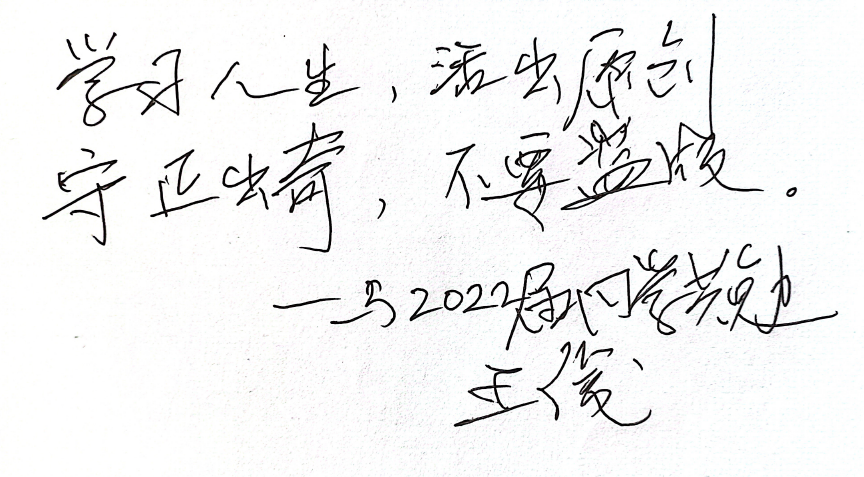 学习人生，活出原创
守正出奇，不要盗版。
—与2022届同学共勉
王俊